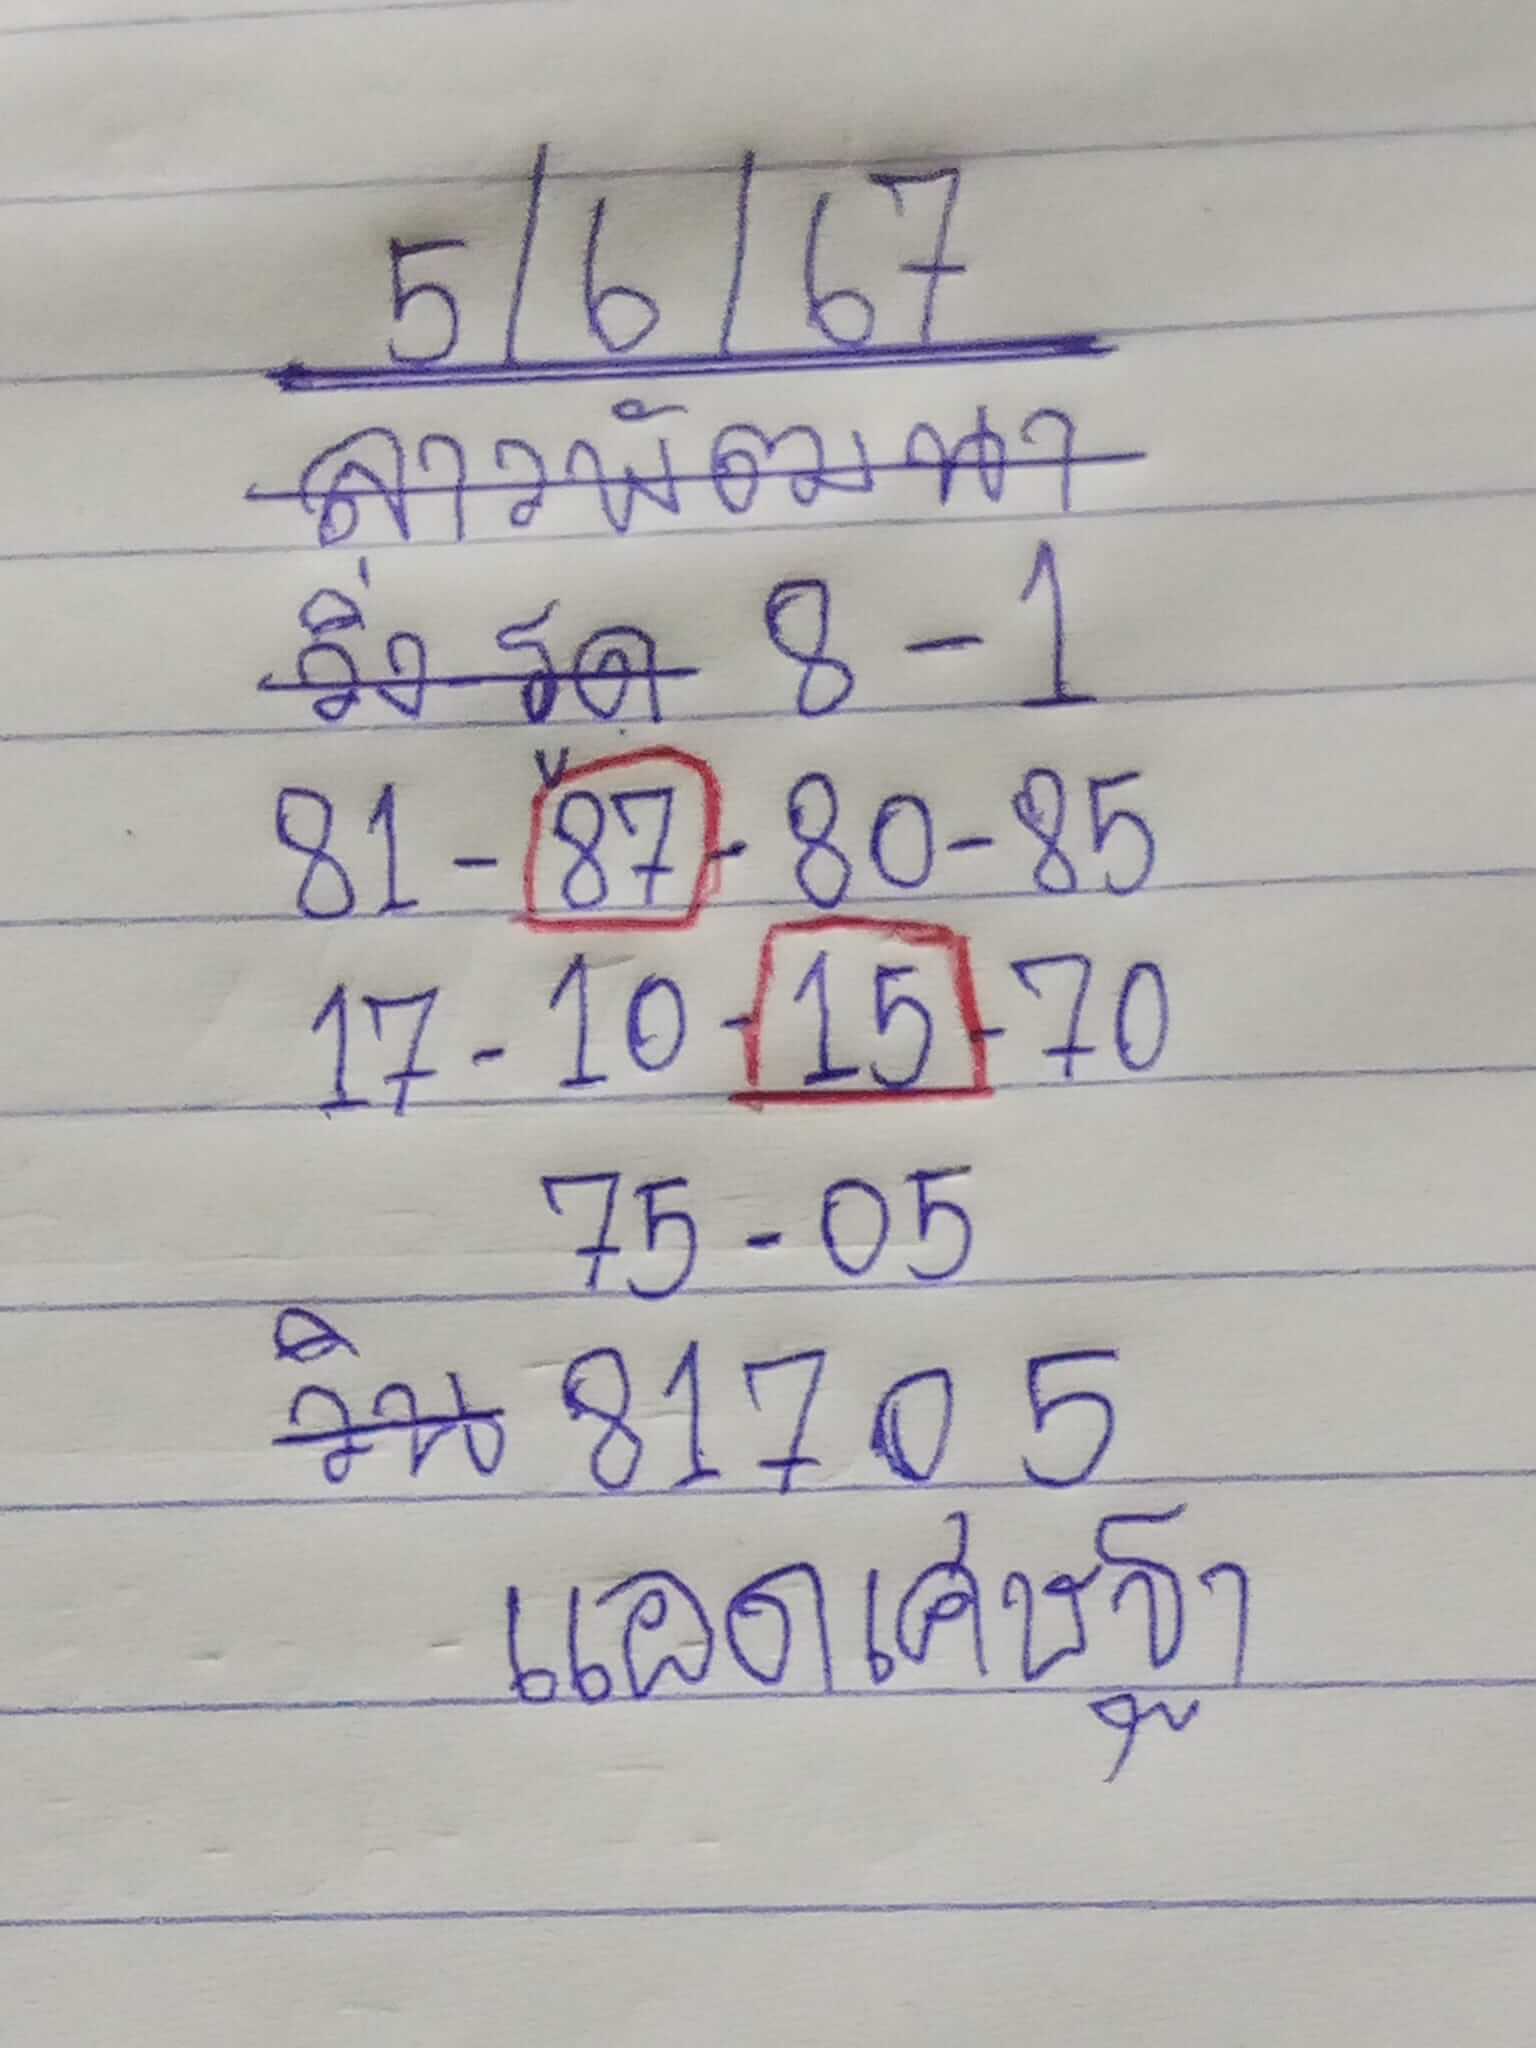 5/6/67
ลาวพัฒนา
วิ่งรูด 8-1
81-87-80-85
17-10-15-70
75-05
วิน 81705
แอดเศษฐา